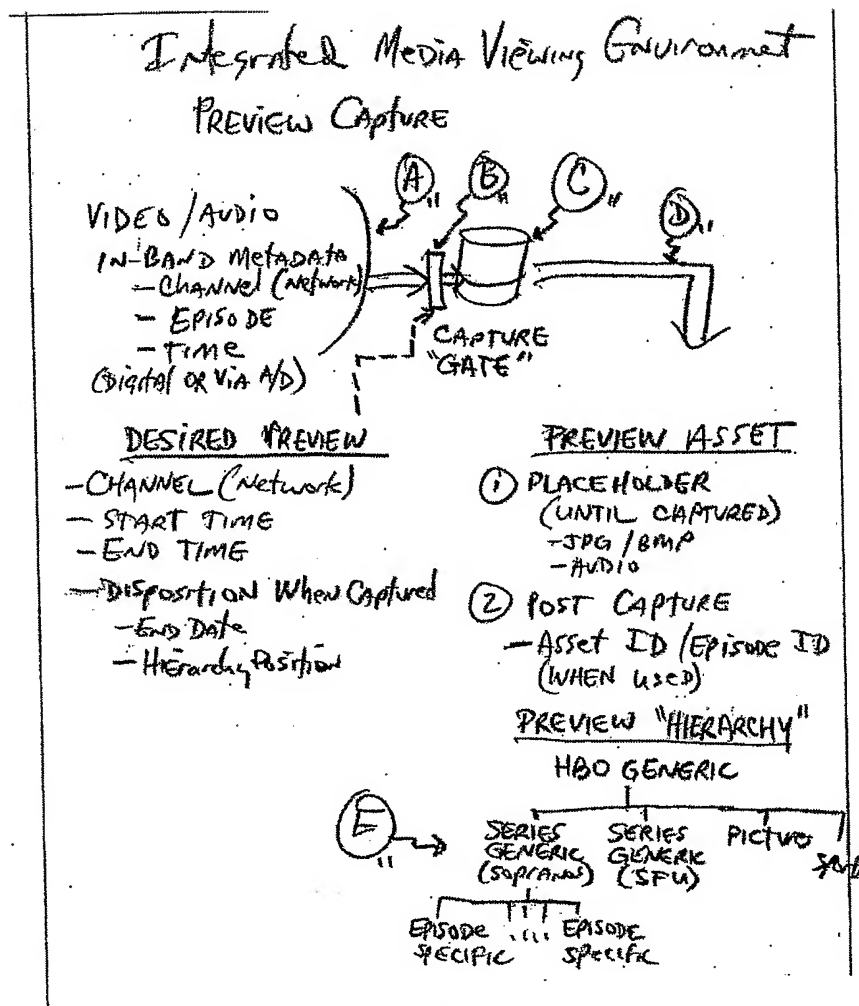 Integrated Media Viewing Environment
PREVIEW CAPTURE
A
B
C
D
VIDEO/AUDIO
IN-BAND METADATA
- CHANNEL (Network)
- EPISODE
- TIME
(Digital OR VIA A/D)
CAPTURE
"GATE"
DESIRED PREVIEW
- CHANNEL (Network)
- START TIME
- END TIME
- Disposition When Captured
- END Date
- Hierarchy Position
PREVIEW ASSET
1 PLACEHOLDER
(UNTIL CAPTURED)
- JPG/BMP
- AUDIO
2 POST CAPTURE
- Asset ID/Episode ID
(WHEN USED)
PREVIEW "HIERARCHY"
HBO GENERIC
E
SERIES GENERIC (SOPRANOS)
SERIES GENERIC (SFU)
PICTURES
Sports
EPISODE SPECIFIC
....
EPISODE SPECIFIC